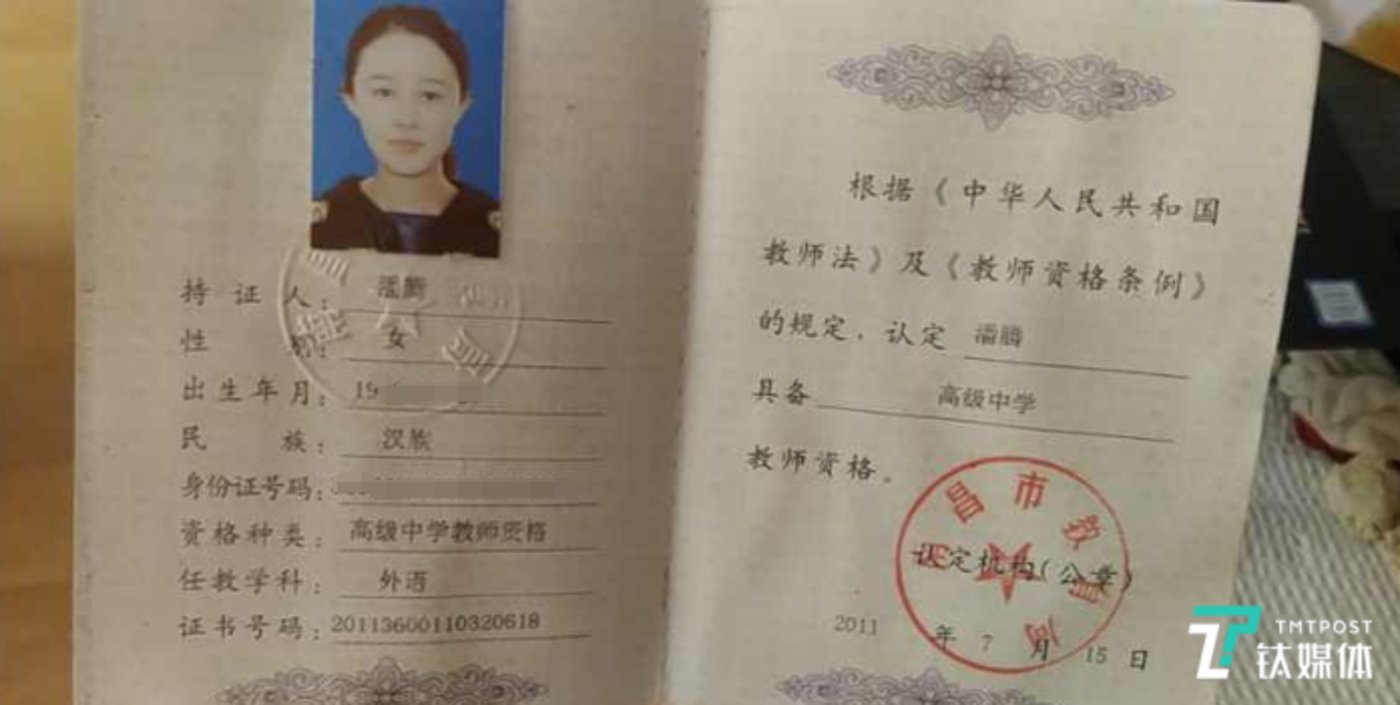 持证人：潘腾
性别：女
出生年月：19
民族：汉族
身份证号码：
资格种类：高级中学教师资格
任教学科：外语
证书号码：20113600110320618
根据《中华人民共和国
教师法》及《教师资格条例》
的规定，认定 潘腾
具备 高级中学
教师资格。
昌市教育局
认定机构（公章）
2011年7月15日
TMTPOST
钛媒体